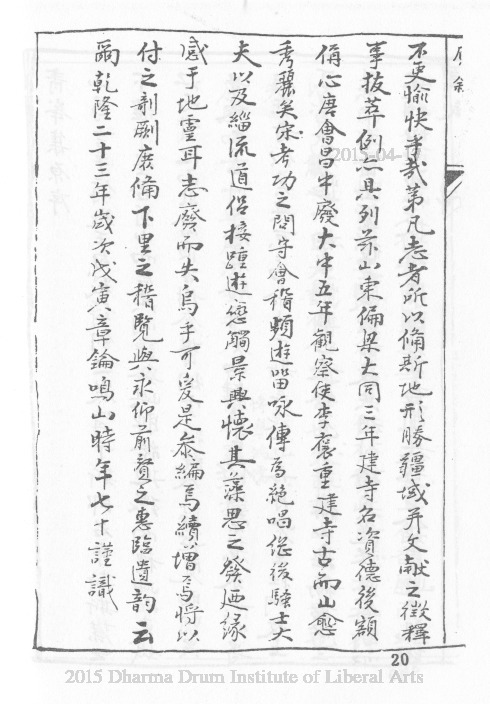 不更愉快乎哉第凡志者所以備斯地形勝疆域并文獻之徵釋
事拔萃例亦具列茲山東偏梁大同三年建寺名資德後額
偁心唐會昌中廢大中五年觀察使李褒重建寺古而山愈
秀麗矣宋考功之問守會稽頻遊留咏傳為絕唱從後騷士大
夫以及緇流道侶接踵遊戀觸景興懷其藻思之發廼緣
感于地靈耳志廢而失烏乎可爰是叅編焉續增焉將以
付之剞劂庶備下里之稽覽與永仰前賢之惠臨遺韵云
爾乾隆二十三年歲次戊寅章鑰鳴山時年七十謹識
20
2015-04-
2015 Dharma Drum Institute of Liberal Arts